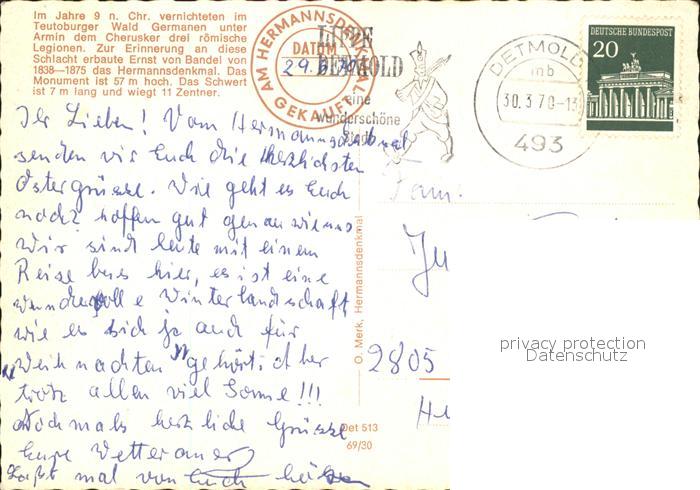 Im Jahre 9 n. Chr. vernichteten im
Teutoburger Wald Germanen unter
Armin dem Cherusker drei römische
Legionen. Zur Erinnerung an diese
Schlacht erbaute Ernst von Bandel von
1838—1875 das Hermannsdenkmal. Das
Monument ist 57 m hoch. Das Schwert
ist 7 m lang und wiegt 11 Zentner.
AM HERMANNSDENKMAL
DATUM
GEKAUFT
LIPPE
DETMOLD
eine
wunderschöne
DETMOLD
mb
30.3.70-13
493
DEUTSCHE BUNDESPOST
20
Ihr Lieben! Vom Hermannsdenkmal
senden wir Euch die herzlichsten
Ostergrüsse. Wie geht es Euch
noch? hoffen gut genau wie uns
Wir sind heute mit einem
Reisebus hier, es ist eine
wundervolle Winterlandschaft
wie es sich ja auch für
"Weihnachten" gehört. Aber
trotz allem viel Sonne!!!
Nochmals herzliche Grüsse
Eure Wetterauer
Laßt mal von Euch hören
Fam.
2805
O. Merk, Hermannsdenkmal
Det 513
69/30
privacy protection
Datenschutz